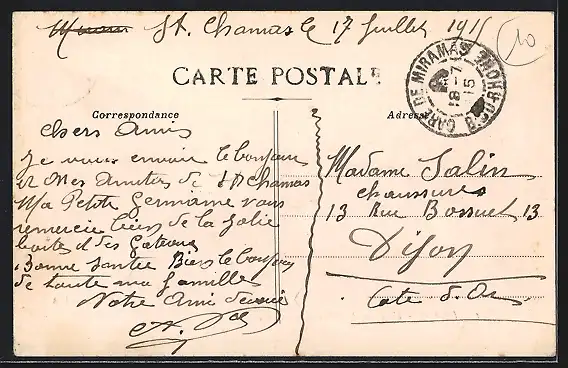 St. Chamas le 17 Juillet 1915
10
CARTE POSTALE
GARE DE MIRAMAS
18-7
15
B. DU RHONE
Correspondance
Adresse
chers Amis
Je vous envoie le bonjour
et Mes Amities de St Chamas
Ma Petite Germaine vous
remercie bien de la Jolie
boite et des Gateaux
Bonne Santée Bien le bonjour
de toute ma famille
Votre Ami devoué
Madame Salin
chaussures
13 Rue Bossuet 13
Dijon
Cote d'Or